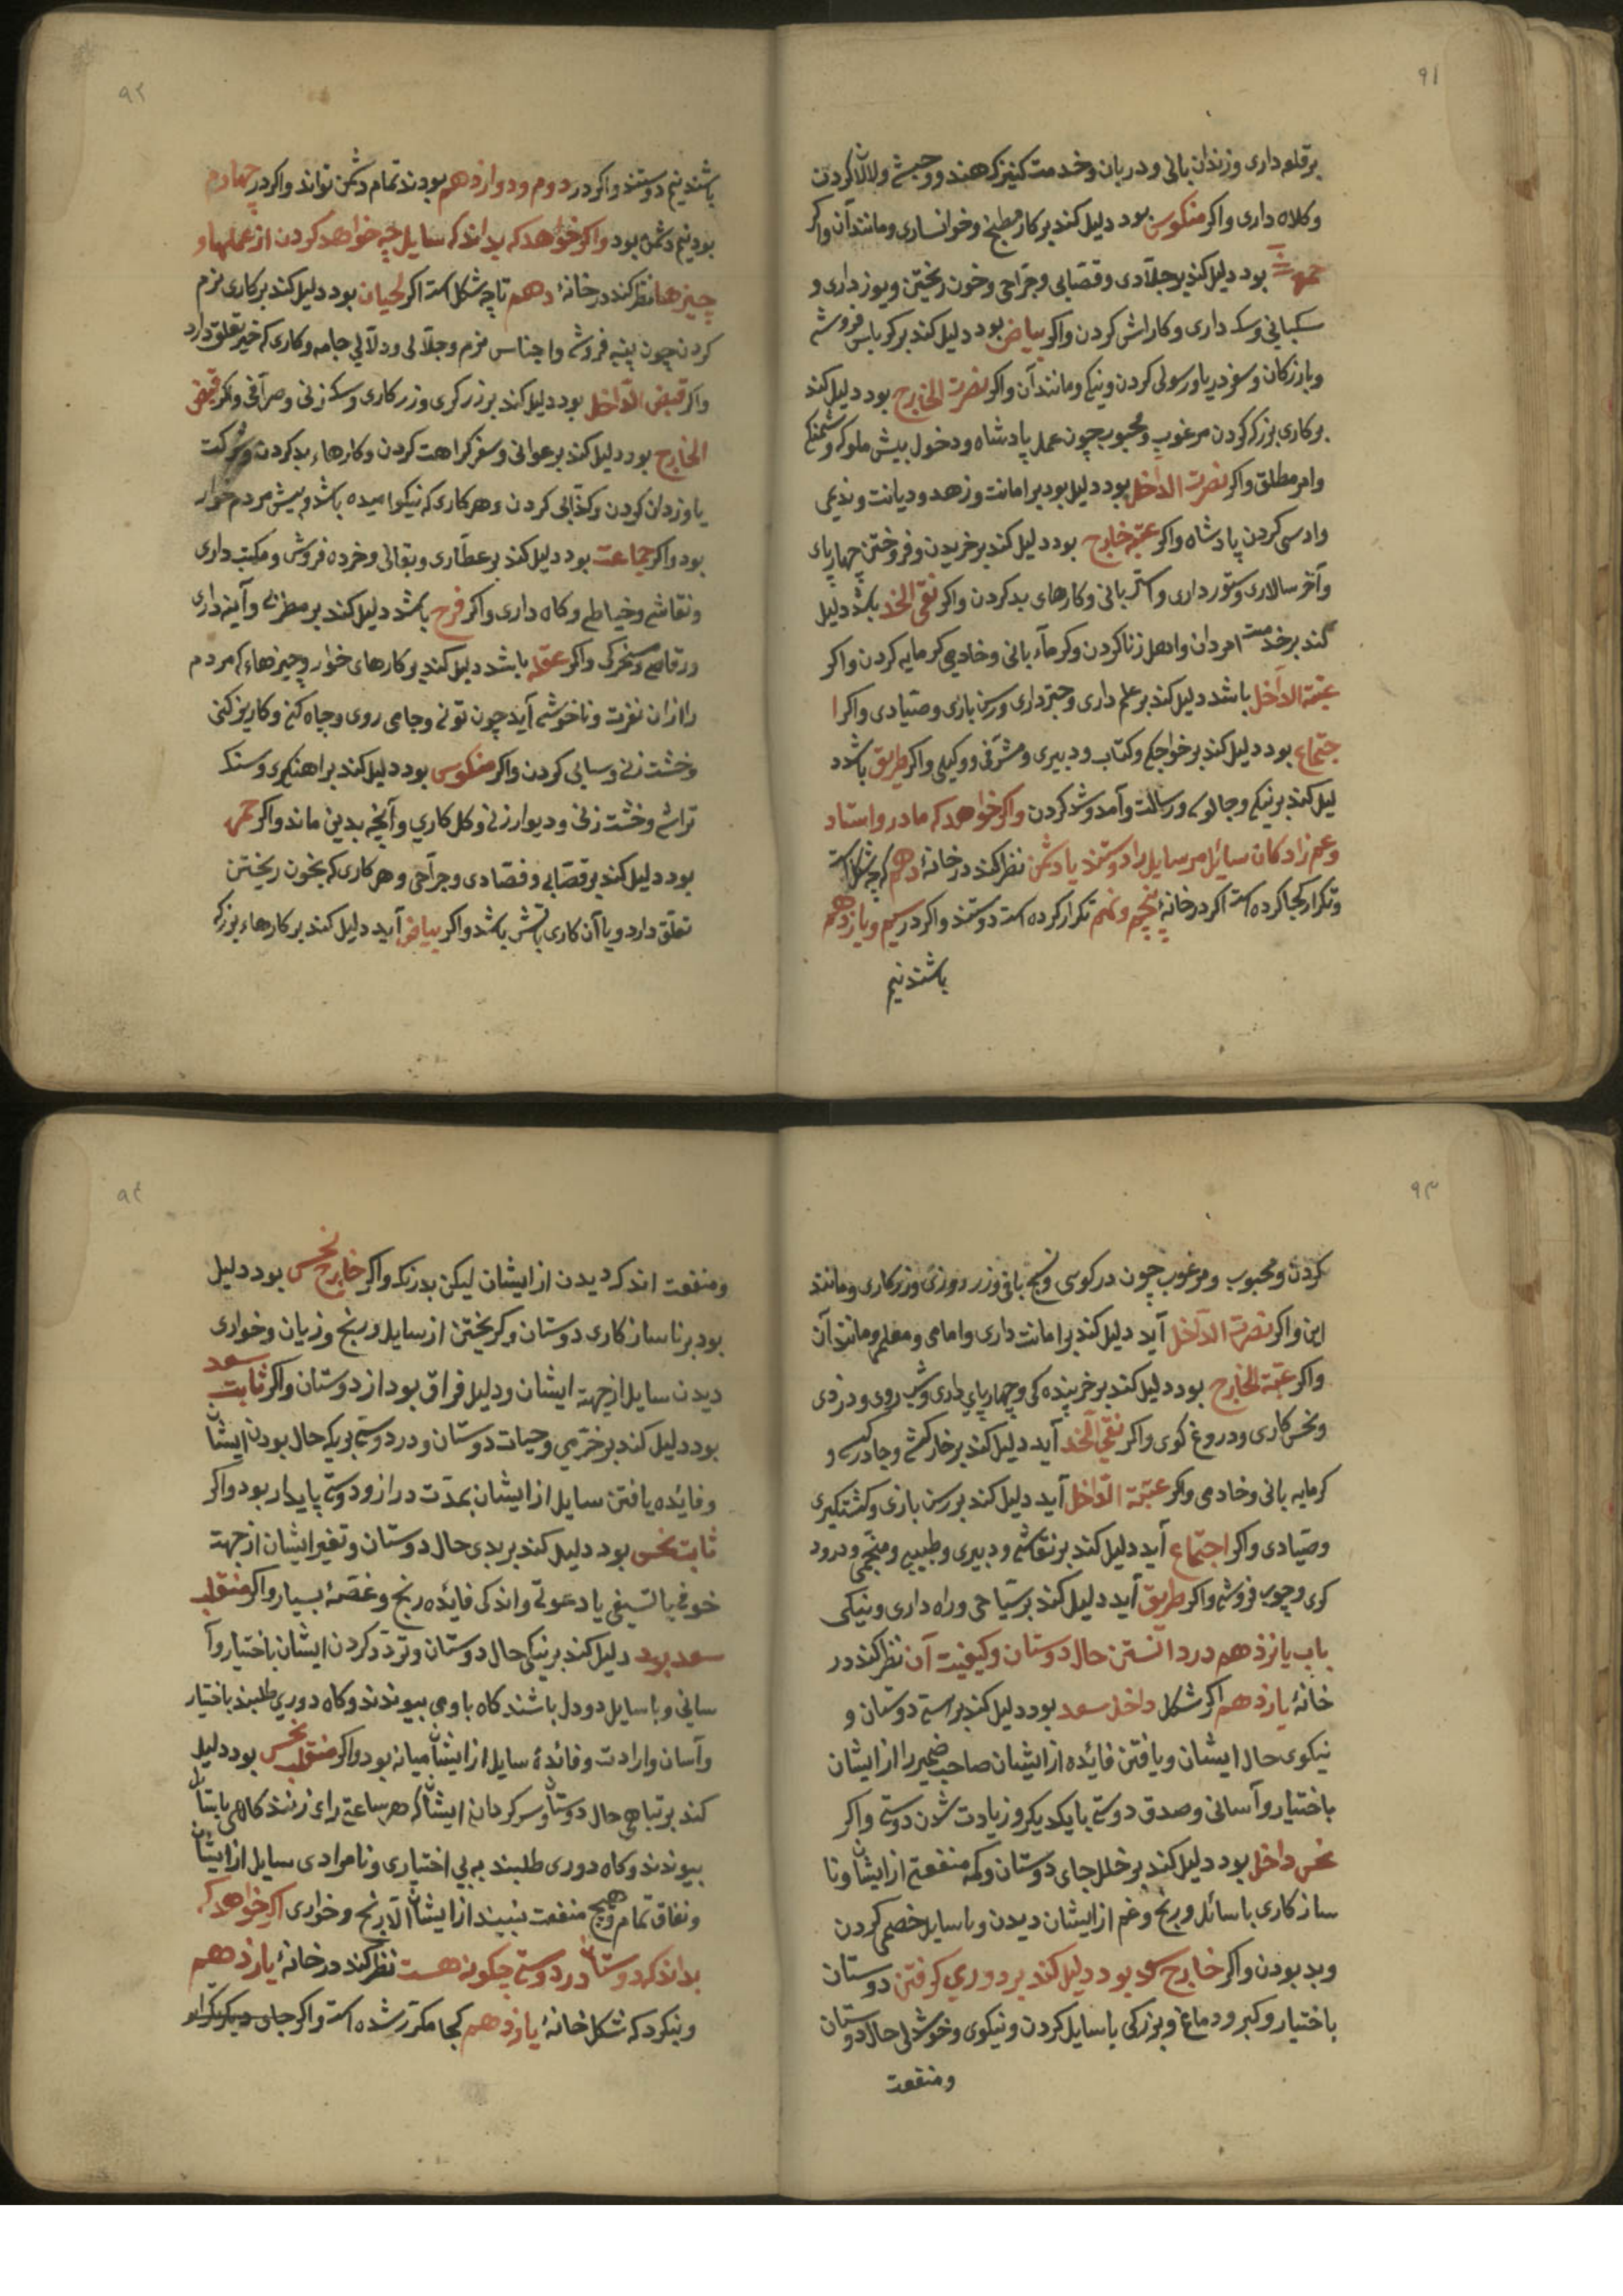 ۹۱
برقلعه داری و زندان بانی و دربان و خدمت کنیزک هند و حبشی و لالا کردن
و کلاه داری واکر منکوس بود دلیل کند برکار مطبخ و خوانساری و مانند آن واکر
حمره بود دلیل کند برجلادی و قصابی و جراحی و خون ریختن و یوز داری و
سکبانی و سکه داری و کاراش کردن واکر بیاض بود دلیل کند برکرباس فروشی
و بازرکان و سفر دریا و رسولی کردن و نیکی و مانند آن واکر نصرت الخارج بود دلیل کند
برکاری بزرک کردن مرغوب و محبوب چون عمل پادشاه و دخول پیش ملوک و
وامر مطلق واکر نصرت الداخل بود دلیل بود برامانت و زهد و دیانت و ندیمی
کردن پادشاه واکر عتبه خارج بود دلیل کند برخریدن و فروختن چهارپای
وآخر سالاری و ستور داری و استر بانی و کارهای بد کردن واکر نقی الخد باشد دلیل
کند برخدمت امردان و اهل زنا کردن و کرمابه بانی و خادمی کرمابه کردن واکر
عتبة الداخل باشد دلیل کند برعلم داری و چتر داری و رسن بازی و صیادی واکر ا
جتماع بود دلیل کند برخواجکی و کتاب و دبیری و مشرفی و وکیلی واکر طریق باشد د
لیل کند برنیکی و رسالت و آمد و شد کردن واکر خواهد که مادر و استاد
و عم زادکان سائل مرسایل را دوستند یا دشمن نظر کند در خانهٔ دهم که چه شکل است
و تکرار کجا کرده است اکر در خانهٔ پنجم و نهم تکرار کرده است دوستند واکر در سیم و یازدهم
باشند نیم
۹۲
باشند نیم دوستند واکر در دوم و دوازدهم بودند تمام دشمن تواند واکر در چهارم
بود نیم دشمن بود واکر خواهد که بداند که سایل چه خواهد کردن از عملها و
چیزها نظر کند در خانهٔ دهم تا چه شکل است اکر لحیان بود دلیل کند برکاری نرم
کردن چون پنبه فروشی و اجناس نرم و جلابی و دلالی جامه و کاری که خیر تعلق دارد
واکر قبض الداخل بود دلیل کند برزرکری و زرکاری و سکه زنی و صرافی واکر قبض
الخارج بود دلیل کند برعوانی و سفر کراهت کردن و کارهاء بد کردن و شرکت
با دزدان کردن و کذابی کردن و هر کاری که نیکو امیده باشد و پیش مردم خوار
بود واکر جماعت بود دلیل کند برعطاری و بقالی و خرده فروشی و مکتب داری
و نقاشی و خیاطی و کاه داری واکر فرح باشد دلیل کند برمطربی و آینه داری
و رقاصی و مسخرکی واکر عقله باشد دلیل کند برکارهای خوار و چیزهاء که مردم
را از ان نفرت و ناخوشی آید چون تونی و جامی روی و چاه کنی و کاریز کنی
و خشت زنی و سیابی کردن واکر منکوس بود دلیل کند براهنکری و سنک
تراشی و خشت زنی و دیوار زنی و کل کاری و آنچه بدین ماند واکر حمره
بود دلیل کند برقصابی و فصادی و جراحی و هر کاری که بخون ریختن
تعلق دارد و یا آن کاری باتش باشد واکر بیاض آید دلیل کند برکارهاء بزرک
۹۳
کردن و محبوب و مرغوب چون درکوسی و نسج بافی و زردوزی و زرکاری و مانند
این واکر نصرت الداخل آید دلیل کند برامانت داری و امامی و معلمی و مانند آن
واکر عتبة الخارج بود دلیل کند برخربنده کی و چهارپای داری و شب روی و دزدی
و نحس کاری و دروغ کوی واکر نقی الخد آید دلیل کند برخارکشی و جادرکشی و
کرمابه بانی و خادمی واکر عتبة الداخل آید دلیل کند بررسن بازی و کشتکیری
و صیادی واکر اجتماع آید دلیل کند برنقاشی و دبیری و طبیبی و منجمی و درود
کری و چوب فروشی واکر طریق آید دلیل کند برسیاحی و راه داری و نیکی
باب یازدهم در دانستن حال دوستان و کیفیت آن نظر کند در
خانهٔ یازدهم اکر شکل داخل سعد بود دلیل کند براستی دوستان و
نیکوی حال ایشان و یافتن فائده از ایشان صاحب ضمیر را از ایشان
باختیار و آسانی و صدق دوستی با یکدیکر و زیادت شدن دوستی واکر
نحس داخل بود دلیل کند برخلل جای دوستان و کمه منفعتی از ایشان و نا
سازکاری با سائل و رنج و غم از ایشان دیدن و با سایل خصمی کردن
و بد بودن واکر خارج سعد بود دلیل کند بردوری کرفتن دوستان
باختیار و کبر و دماغ و بزرکی با سایل کردن و نیکوی و خوشدلی حال دوستان
و منفعت
۹۴
و منفعت اندک دیدن از ایشان لیکن بدرنک واکر خارج نحس بود دلیل
بود برناسازکاری دوستان و کریختن از سایل و رنج و زیان و خواری
دیدن سایل از جهت ایشان و دلیل فراق بود از دوستان واکر ثابت سعد
بود دلیل کند برخرمی و حیات دوستان و در دوستی بریک حال بودن ایشان
و فائده یافتن سایل از ایشان بمدت دراز و دوستی پایدار بود واکر
ثابت نحس بود دلیل کند بربدی حال دوستان و تغیر ایشان از جهت
خوفی یا یا دعوتی و اندکی فائده رنج و غصهٔ بسیار واکر منقلب
سعد بود دلیل کند برنیکی حال دوستان و تردد کردن ایشان باختیار و آ
سانی و با سایل دو دل باشند کاه با وی پیوندند و کاه دوری طلبند باختیار
و آسان و ارادت و فائدهٔ سایل از ایشان میانه بود واکر منقلب نحس بود دلیل
کند برتباهی حال دوستان و سرکردانی ایشان که هر ساعتی رای زنند کاهی بایشان
پیوندند و کاه دوری طلبند به بی اختیاری و نامرادی سایل از ایشان
و نفاق تمام و هیچ منفعت نبیند از ایشان الا رنج و خواری اکر خواهد که
بداند که دوستان در دوستی چکونه هست نظر کند در خانهٔ یازدهم
و بنکرد که شکل خانهٔ یازدهم کجا مکرر شده است واکر جای دیکر تکرار